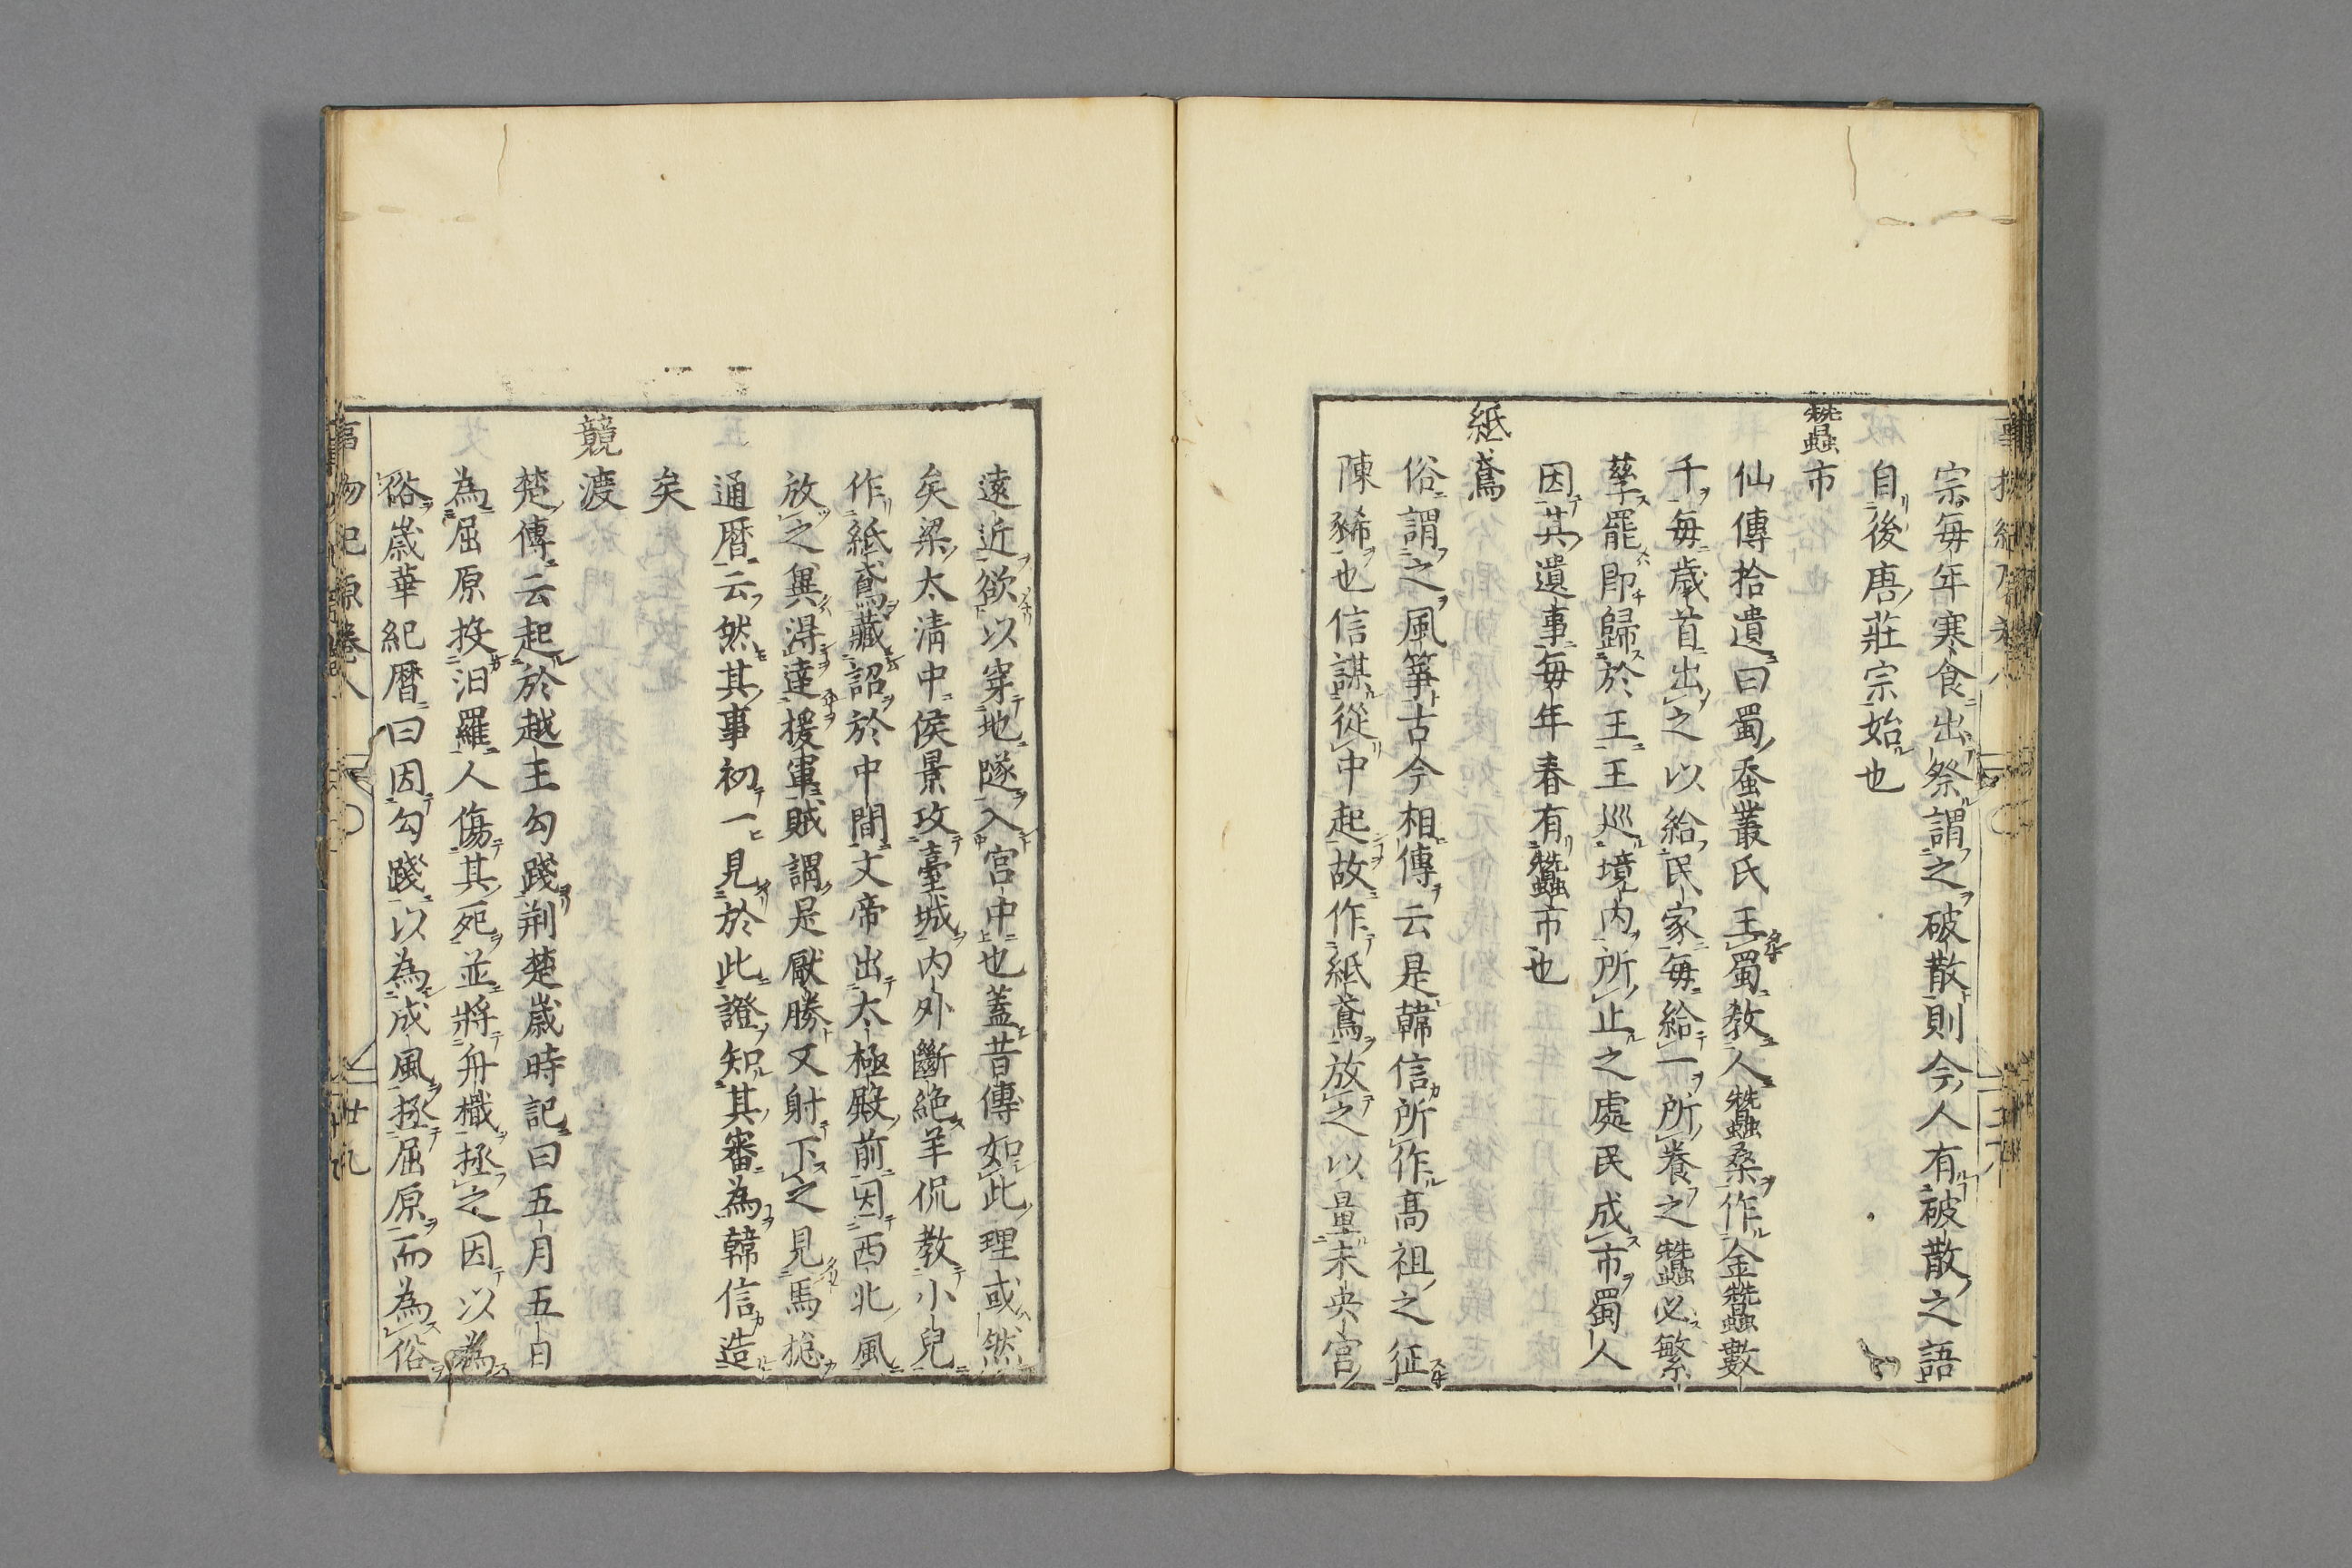 宗每年寒食出祭謂之破散則今人有破散之語
自後唐莊宗始也
蠶市
仙傳拾遺曰蜀蚕叢氏王蜀教人蠶桑作金蠶數
千每歲首出之以給民家每給一所養之蠶必繁
孳罷即歸於王王巡境内所止之處民成市蜀人
因其遺事每年春有蠶市也
紙鳶
俗謂之風箏古今相傳云是韓信所作高祖之征
陳豨也信謀從中起故作紙鳶放之以量未央宮
遠近欲以穿地隧入宮中也蓋昔傳如此理或然
矣梁太清中侯景攻臺城内外斷絶羊侃教小兒
作紙鳶藏詔於中間文帝出太極殿前因西北風
放之兾得達援軍賊謂是厭勝又射下之見馬摠
通曆云然其事初一見於此證知其審為韓信造
矣
競渡
楚傳云起於越王勾踐荆楚歲時記曰五月五日
為屈原投汨羅人傷其死並將舟檝拯之因以為
俗歲華紀曆曰因勾踐以為成風拯屈原而為俗
事物紀原卷八
廿九